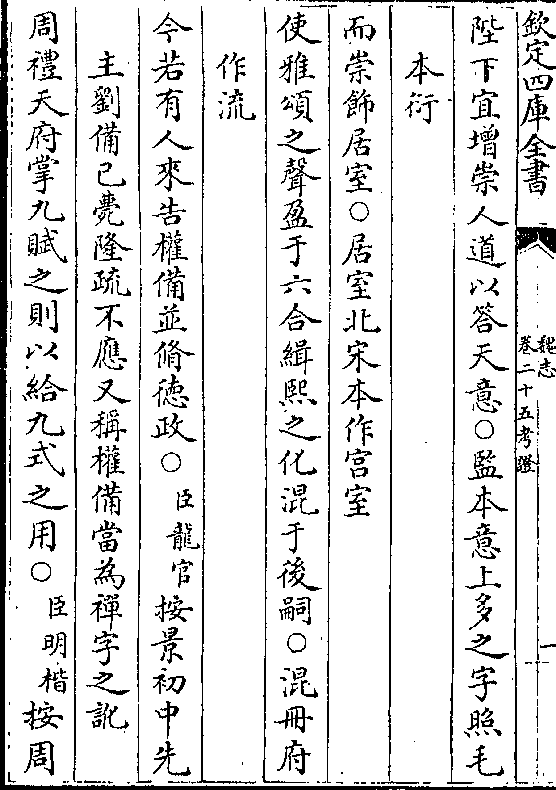 欽定四庫全書
魏志
卷二十五考證
一
陛下宜增崇人道以答天意○監本意上多之字照毛
本衍
而崇飾居室○居室北宋本作宫室
使雅頌之聲盈于六合緝熙之化混于後嗣○混冊府
作流
今若有人來告權備並脩徳政○臣龍官按景初中先
主劉備已薨隆疏不應又稱權備當為禪字之訛
周禮天府掌九賦之則以給九式之用○臣明楷按周